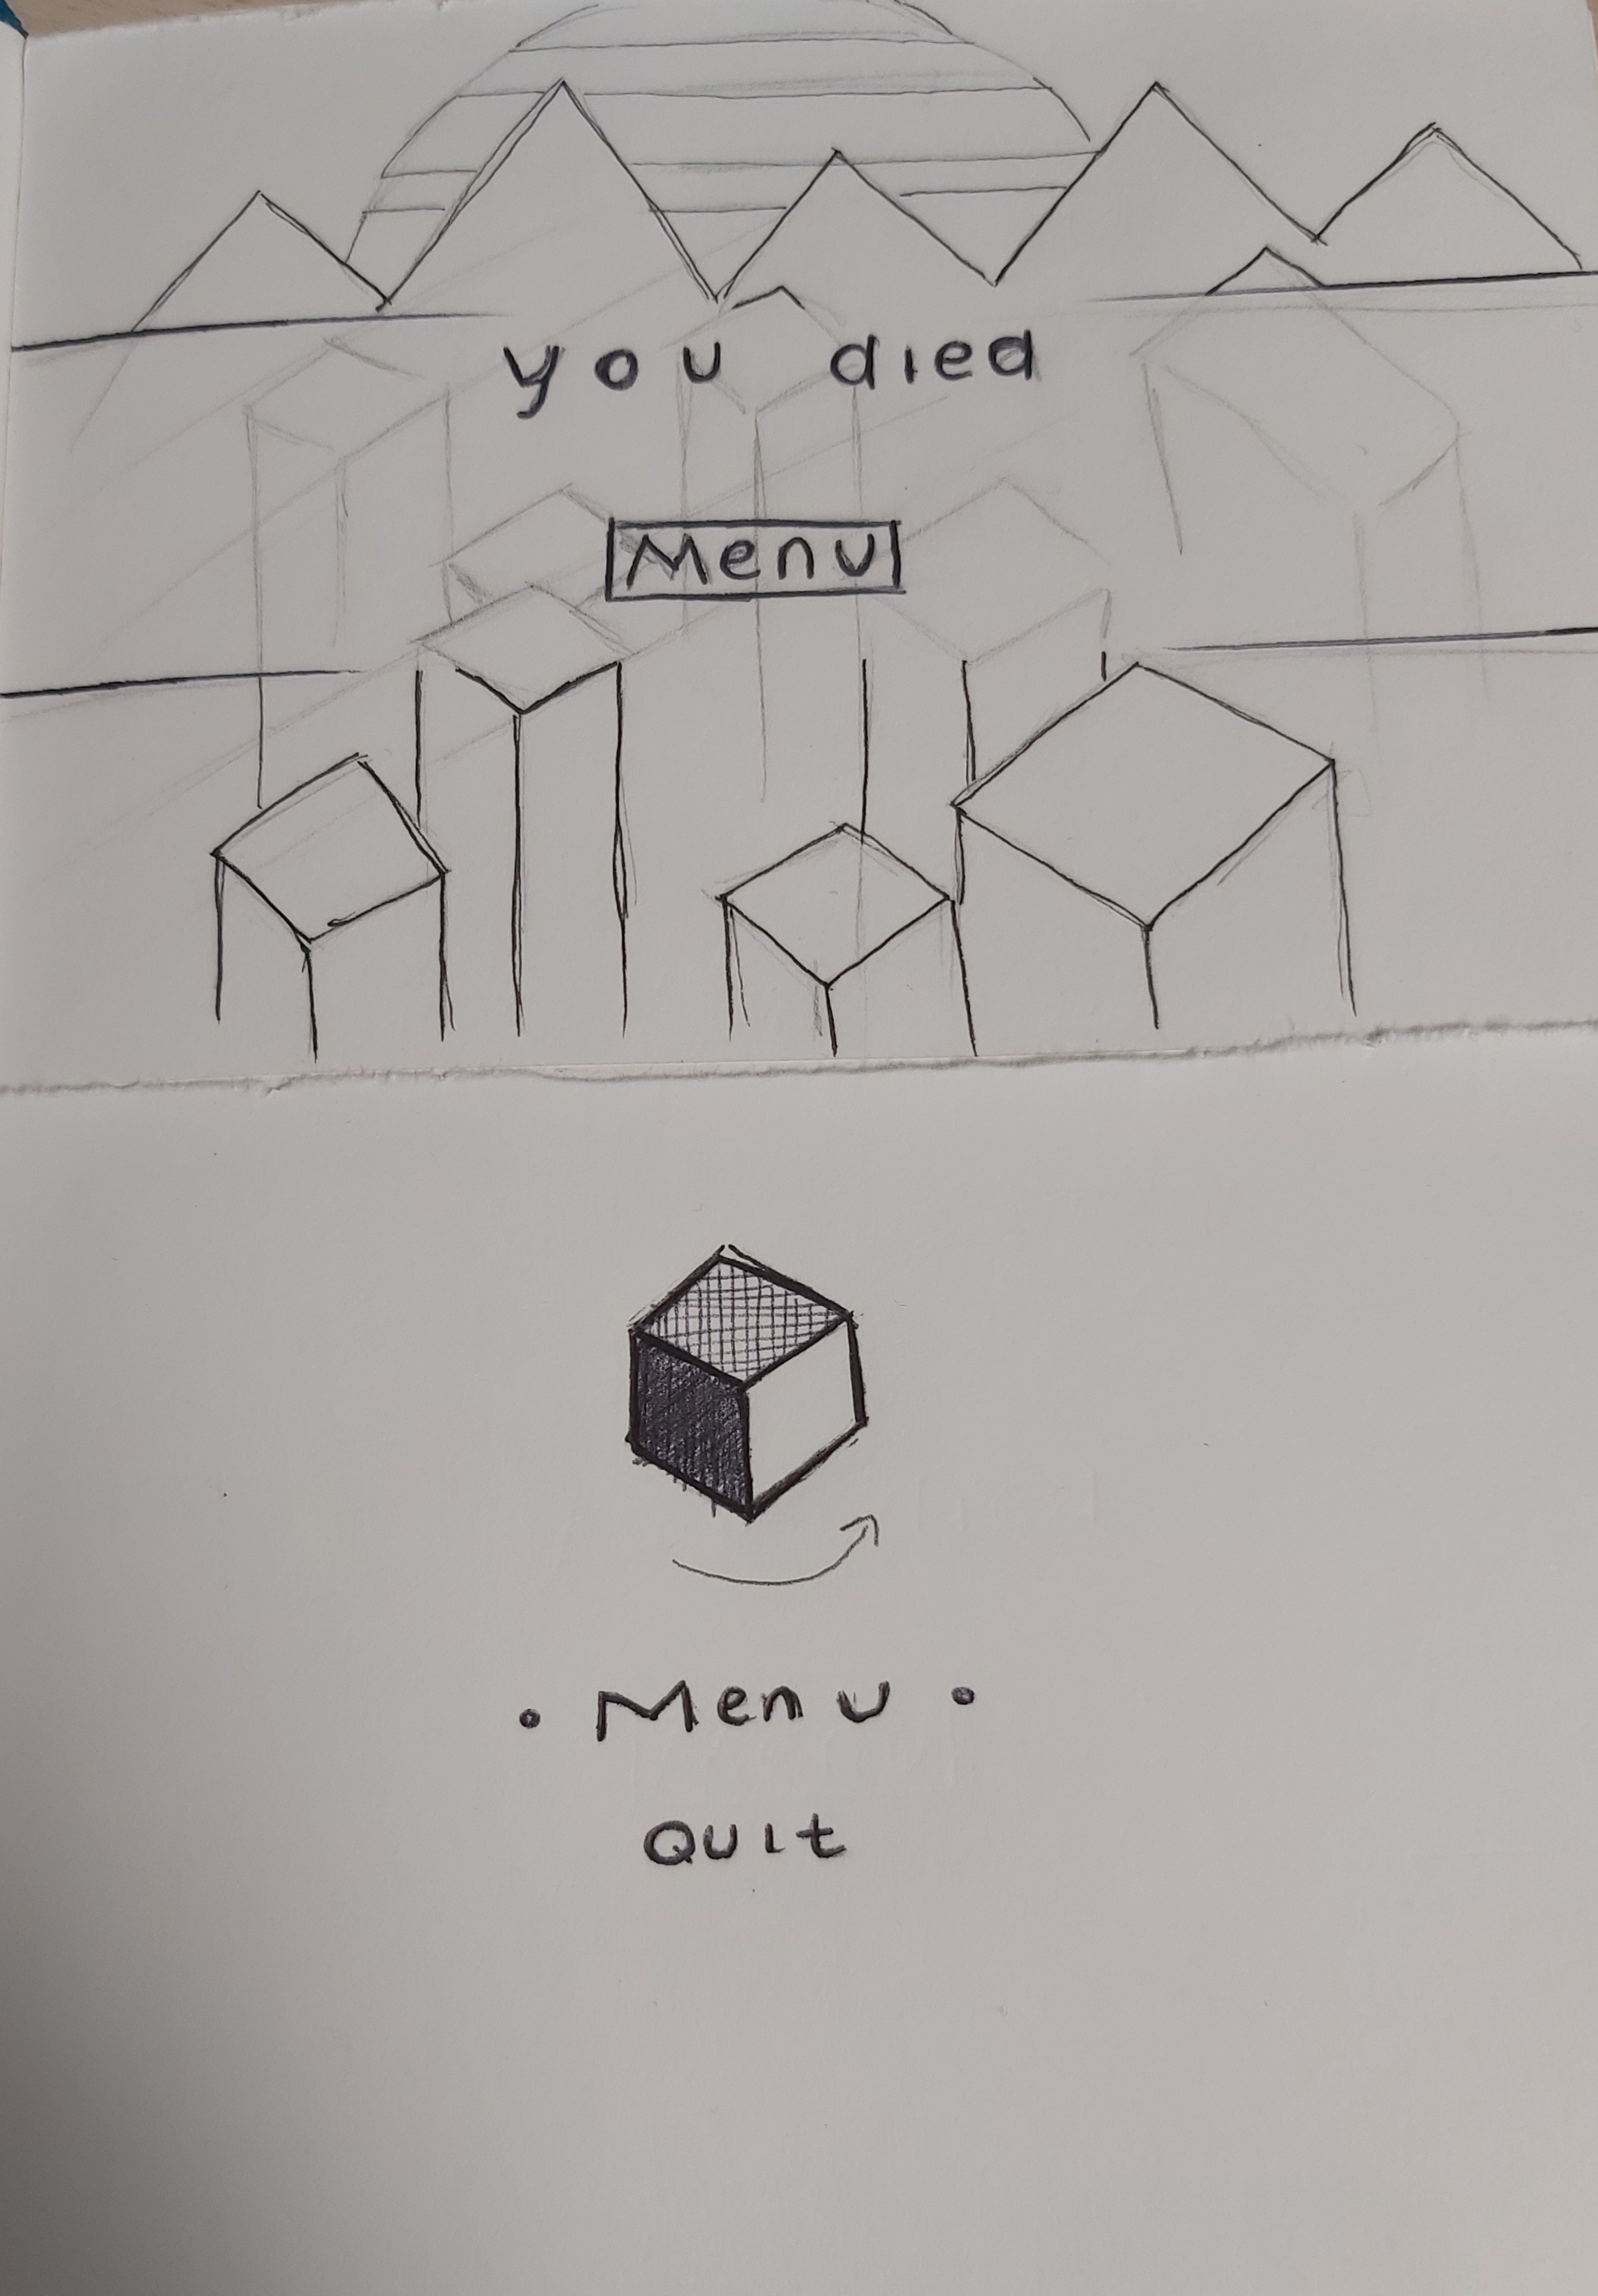 you died
Menu
• Menu •
Quit